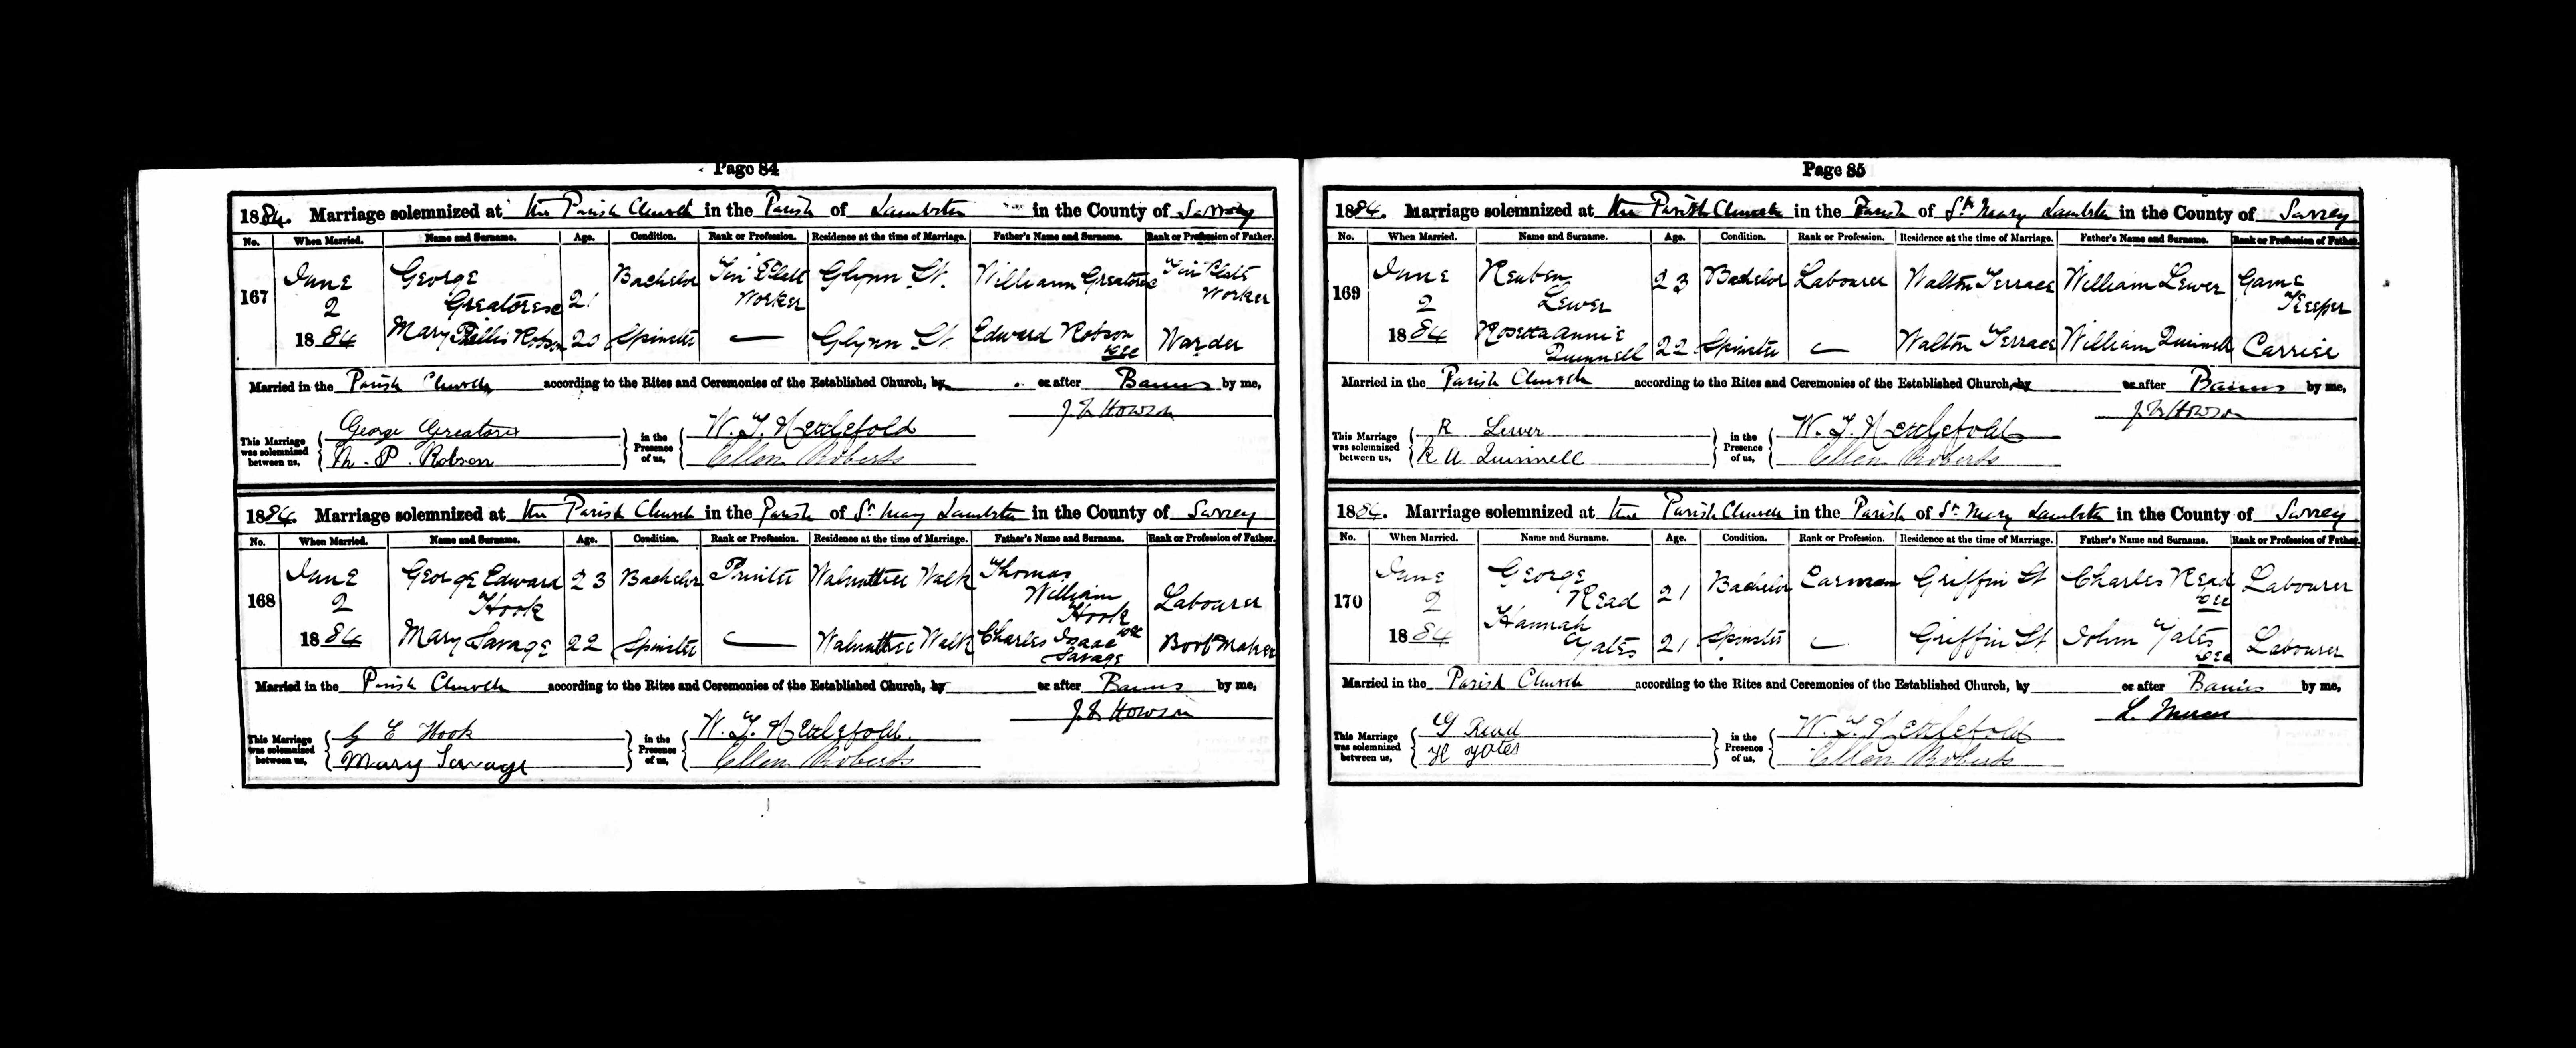 Page 84
1884. Marriage solemnized at the Parish Church in the Parish of Lambeth in the County of Surrey
No. When Married. Name and Surname. Age. Condition. Rank or Profession. Residence at the time of Marriage. Father's Name and Surname. Rank or Profession of Father.
167 June 2 1884 George Greatorex 21 Bachelor Tin Plate Worker Glynn St. William Greatorex Tin Plate Worker
Mary Phillis Robson 20 Spinster — Glynn St. Edward Robson dec Warder
Married in the Parish Church according to the Rites and Ceremonies of the Established Church, by or after Banns by me,
J. F. Howson
This Marriage was solemnized between us, George Greatorex in the Presence of us, W. T. Nettlefold
M. P. Robson Ellen Roberts
1884. Marriage solemnized at the Parish Church in the Parish of St. Mary Lambeth in the County of Surrey
No. When Married. Name and Surname. Age. Condition. Rank or Profession. Residence at the time of Marriage. Father's Name and Surname. Rank or Profession of Father.
168 June 2 1884 George Edward Hook 23 Bachelor Printer Walnuttree Walk Thomas William Hook dec Labourer
Mary Savage 22 Spinster — Walnuttree Walk Charles Isaac Savage Boot Maker
Married in the Parish Church according to the Rites and Ceremonies of the Established Church, by or after Banns by me,
J. F. Howson
This Marriage was solemnized between us, G E Hook in the Presence of us, W. T. Nettlefold.
Mary Savage Ellen Roberts
Page 85
1884. Marriage solemnized at the Parish Church in the Parish of St. Mary Lambeth in the County of Surrey
No. When Married. Name and Surname. Age. Condition. Rank or Profession. Residence at the time of Marriage. Father's Name and Surname. Rank or Profession of Father.
169 June 2 1884 Reuben Lewer 23 Bachelor Labourer Walton Terrace William Lewer Game Keeper
Rosetta Annie Quinnell 22 Spinster — Walton Terrace William Quinnell
Married in the Parish Church according to the Rites and Ceremonies of the Established Church, by or after Banns by me,
J. F. Howson
This Marriage was solemnized between us, R Lewer in the Presence of us, W. T. Nettlefold
R A Quinnell Ellen Roberts
1884. Marriage solemnized at the Parish Church in the Parish of St. Mary Lambeth in the County of Surrey
No. When Married. Name and Surname. Age. Condition. Rank or Profession. Residence at the time of Marriage. Father's Name and Surname. Rank or Profession of Father.
170 June 2 1884 George Read 21 Bachelor Carman Griffin St Charles Read dec Labourer
Hannah Yates 21 Spinster — Griffin St John Yates dec Labourer
Married in the Parish Church according to the Rites and Ceremonies of the Established Church, by or after Banns by me,
This Marriage was solemnized between us, G Read in the Presence of us, W. T. Nettlefold
H Yates Ellen Roberts